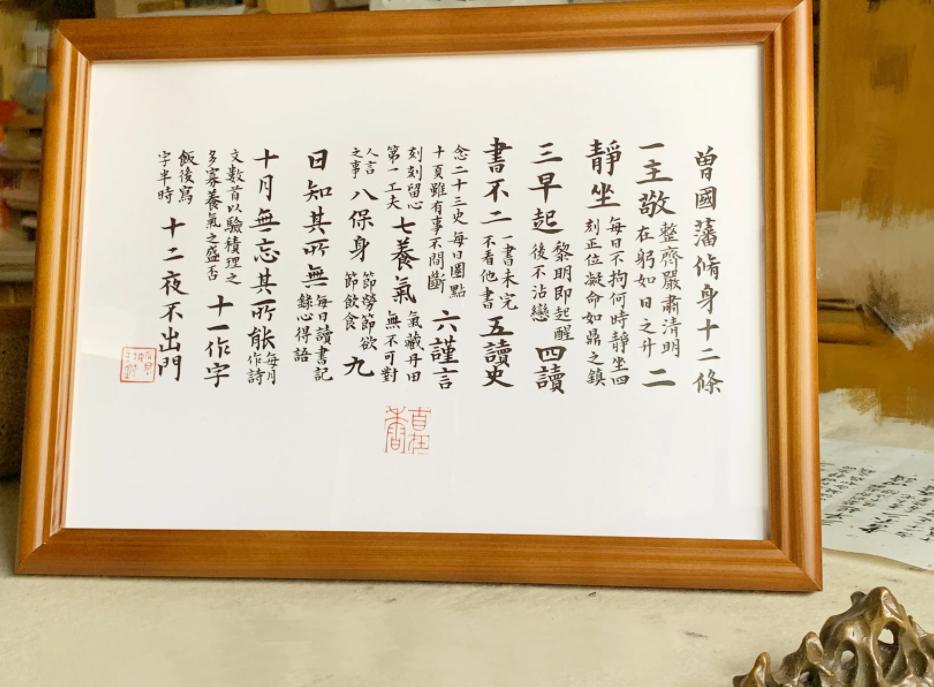 曾國藩脩身十二條
一主敬
整齊嚴肅清明
在躬如日之升
二
靜坐
每日不拘何時靜坐四
刻正位凝命如鼎之鎮
三早起
黎明即起醒
後不沾戀
四讀
書不二
一書未完
不看他書
五讀史
念二十三史每日圈點
十頁雖有事不間斷
六謹言
刻刻留心
第一工夫
七養氣
氣藏丹田
無不可對
人言
之事
八保身
節勞節欲
節飲食
九
日知其所無
每日讀書記
錄心得語
十月無忘其所能
每月
作詩
文數首以驗積理之
多寡養氣之盛否
十一作字
飯後寫
字半時
十二夜不出門